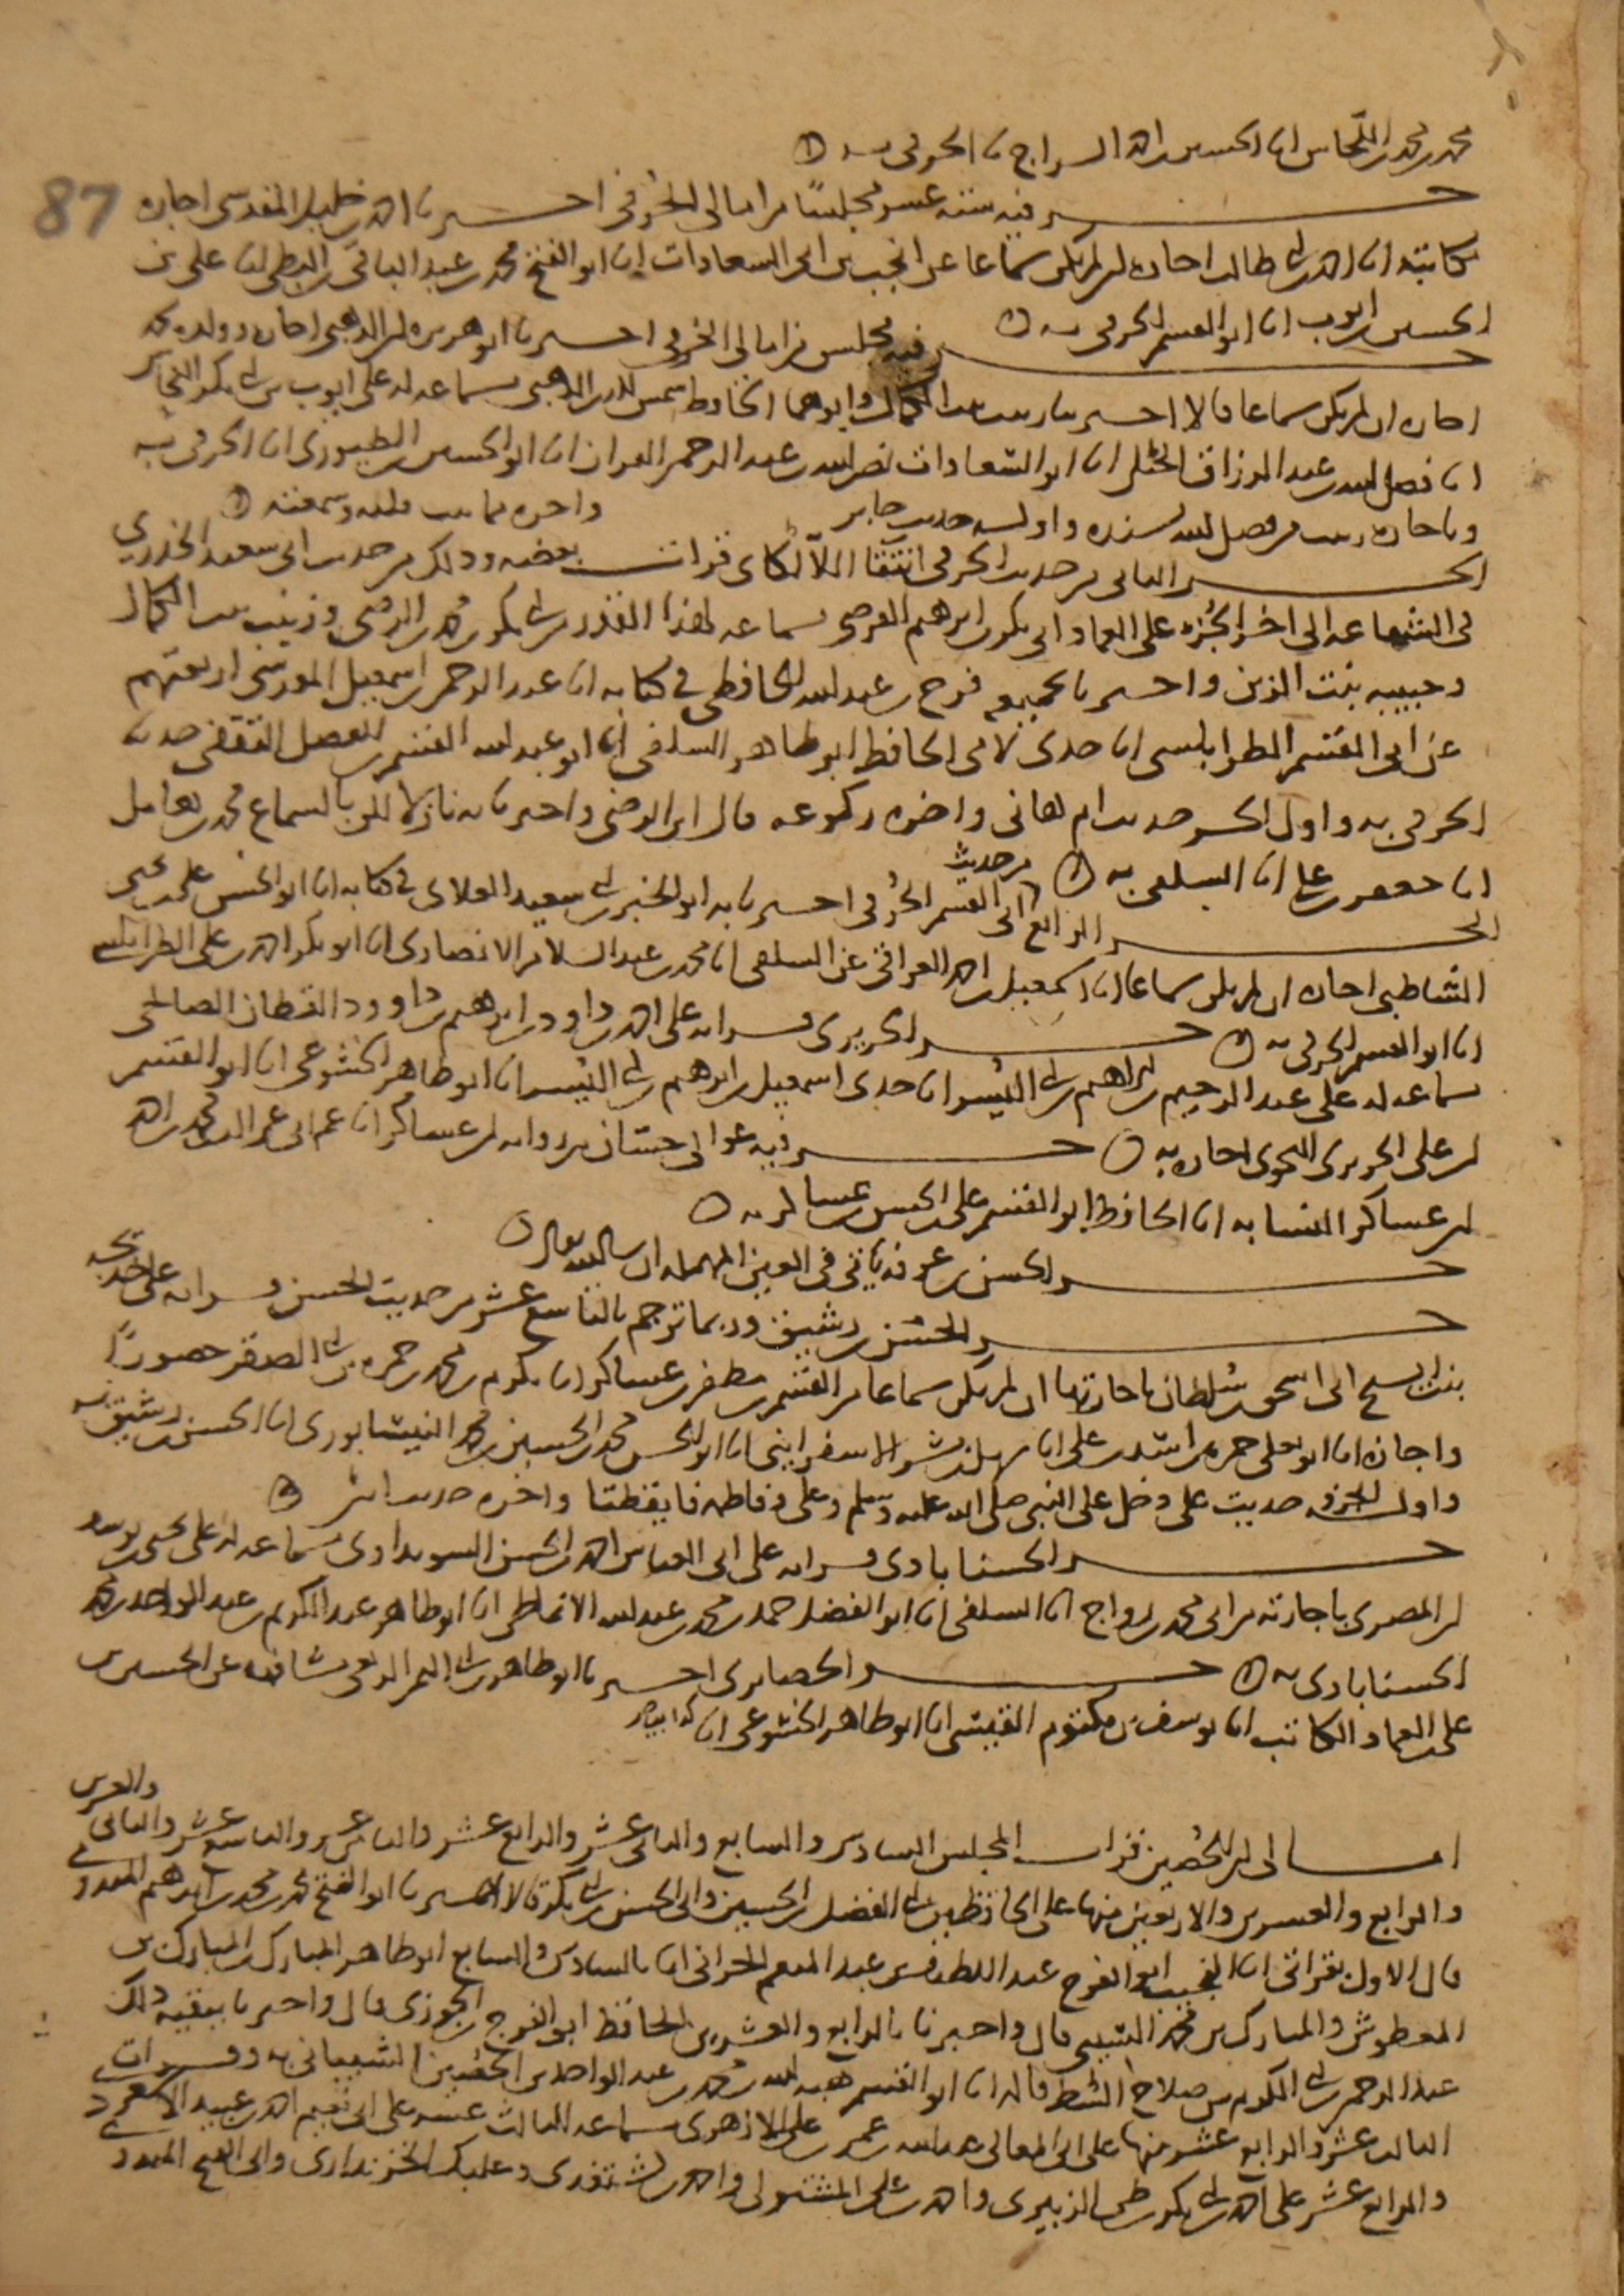 محمد بن محمد اللحاس انا الحسين بن احمد السراج نا الحرفي به
87
جزء فيه ستة عشر مجلسا من امالي الحرفي اخبرنا احمد بن خليل المقدسي اجازة
مكاتبة انا احمد بن ابي طالب اجازة ان لم يكن سماعا عن انجب بن ابي السعادات انا ابو الفتح محمد بن عبد الباقي بن البطي انا علي بن
الحسين بن ايوب انا ابو القسم الحرفي به
جزء فيه مجلس من امالي الحرفي اخبرنا ابو هريرة بن الذهبي اجازة وولده محمد
اجازة ان لم يكن سماعا قالا اخبرتنا زينب بنت الكمال وابوهما الحافظ شمس الدين الذهبي بسماعه له على ايوب بن ابي بكر النحاس
انا فضل الله بن عبد الرزاق الجيلي انا ابو السعادات نصر الله بن عبد الرحمن القزاز انا ابو الحسين الطيوري انا الحرفي به
وباجازة زينب من فضل الله بسنده واوله حديث جابر واخره مما
الجزء الثاني من حديث الحرفي انتقا اللالكاي قرات بعضه وذلك من حديث ابي سعيد الخدري
في الشفاعة الى اخر الجزء على العماد ابي بكر بن ابرهيم الفرضي بسماعه لهذا القدر من ابي بكر بن محمد بن الرضي وزينب بنت الكمال
وحبيبة بنت الزين واخبرنا بجميعه فرج بن عبد الله الحافظي في كتابه انا عبد الرحمن بن اسمعيل المردسي اربعتهم
عن ابي القسم الطرابلسي انا جدي لامي الحافظ ابو طاهر السلفي انا ابو عبد الله القسم بن الفضل الثقفي حدثنا
الحرفي به واول الجزء حديث ام هاني واخره ركوعه قال ابن الرضي واخبرنا به نازلا بالسماع محمد بن كامل
انا جعفر بن علي انا السلفي به
الجزء الرابع من حديث ابي القسم الحرفي اخبرنا به ابو الخير بن ابي سعيد العلاي في كتابه انا ابو الحسن علي بن يحيى
الشاطبي اجازة ان لم يكن سماعا انا اسمعيل بن احمد العراقي عن السلفي انا محمد بن عبد السلام الانصاري انا ابو بكر احمد بن علي الطرابلسي
انا ابو القسم الحرفي به
جزء الحريري قراته على احمد بن داود بن ابرهيم بن داوود القطان الصالحي
بسماعه له على عبد الرحيم بن ابراهيم بن ابي اليسر انا جدي اسمعيل بن ابرهيم بن ابي اليسر انا ابو طاهر الخشوعي انا ابو القسم
بن علي الحريري النحوي اجازة به
جزء فيه عوالي حسان من رواية ابن عساكر انا عم ابي عز الدين محمد بن احمد
بن عساكر النسابة انا الحافظ ابو القسم علي بن الحسن بن عساكر به
جزء الحسن بن عرفة ياتي في العين المهملة ان شا الله تعالى
جزء الحسن بن رشيق وربما ترجم بالتاسع عشر من حديث الحسن قراته على خديجة
بنت الشيخ ابي اسحق بن سلطان باجازتها ان لم يكن سماعا من القسم بن مظفر بن عساكر انا مكرم بن محمد بن حمزة بن ابي الصقر حضورا
واجازة انا ابو يعلى حمزة بن اسد بن علي انا سهل بن بشر الاسفرايني انا ابو الحسن محمد بن الحسين بن محمد النيسابوري انا الحسن بن رشيق به
واول الجزء حديث علي دخل على النبي صلى الله عليه وسلم وعلى فاطمة فايقظنا واخره حديث انس
جزء الحسناباذي قراته على ابي العباس احمد بن الحسن السويداوي بسماعه له على يحيى بن يوسف
بن المصري باجازته من ابي محمد بن رواج انا السلفي انا ابو الفضل حمد بن محمد بن عبد الله الانماطي انا ابو طاهر عبد الكريم بن عبد الواحد بن محمد
الحسناباذي به
جزء الحصايري اخبرنا ابو طاهر بن ابي اليمن الربعي مشافهة عن الحسين بن
علي بن العماد الكاتب انا يوسف بن مكتوم القيسي انا ابو طاهر الخشوعي انا كذا بياض
امالي ابن الحصين قرات المجلس السادس والسابع والثاني عشر والرابع عشر والثامن عشر والتاسع عشر والثاني والعشرين
والرابع والعشرين والاربعين منها على الحافظين ابي الفضل بن الحسين وابي الحسن بن ابي بكر قالا اخبرنا ابو الفتح محمد بن محمد بن ابرهيم الميدومي
قال الاول بقراتي انا النجيب ابو الفرج عبد اللطيف بن عبد المنعم الحراني انا بالسادس والسابع ابو طاهر المبارك بن المبارك بن
المعطوش والمبارك بن محمد الشيبي قال واخبرنا بالرابع والعشرين الحافظ ابو الفرج بن الجوزي قال واخبرنا ببقية ذلك
عبد الرحمن بن ابي الكرم بن صلاح الشط قالوا انا ابو القسم هبة الله بن محمد بن عبد الواحد بن الحصين الشيباني به وقرات
الثالث عشر والرابع عشر منها على ابي المعالي عبد الله بن عمر بن علي الازهري بسماعه الثالث عشر على ابي نعيم احمد بن عبيد الاسعردي
والرابع عشر على احمد بن ابي بكر بن طي الزبيري واحمد بن علي المشتولي واحمد بن كشتغدي وعلبك الخزنداري وابي الفتح الميدومي